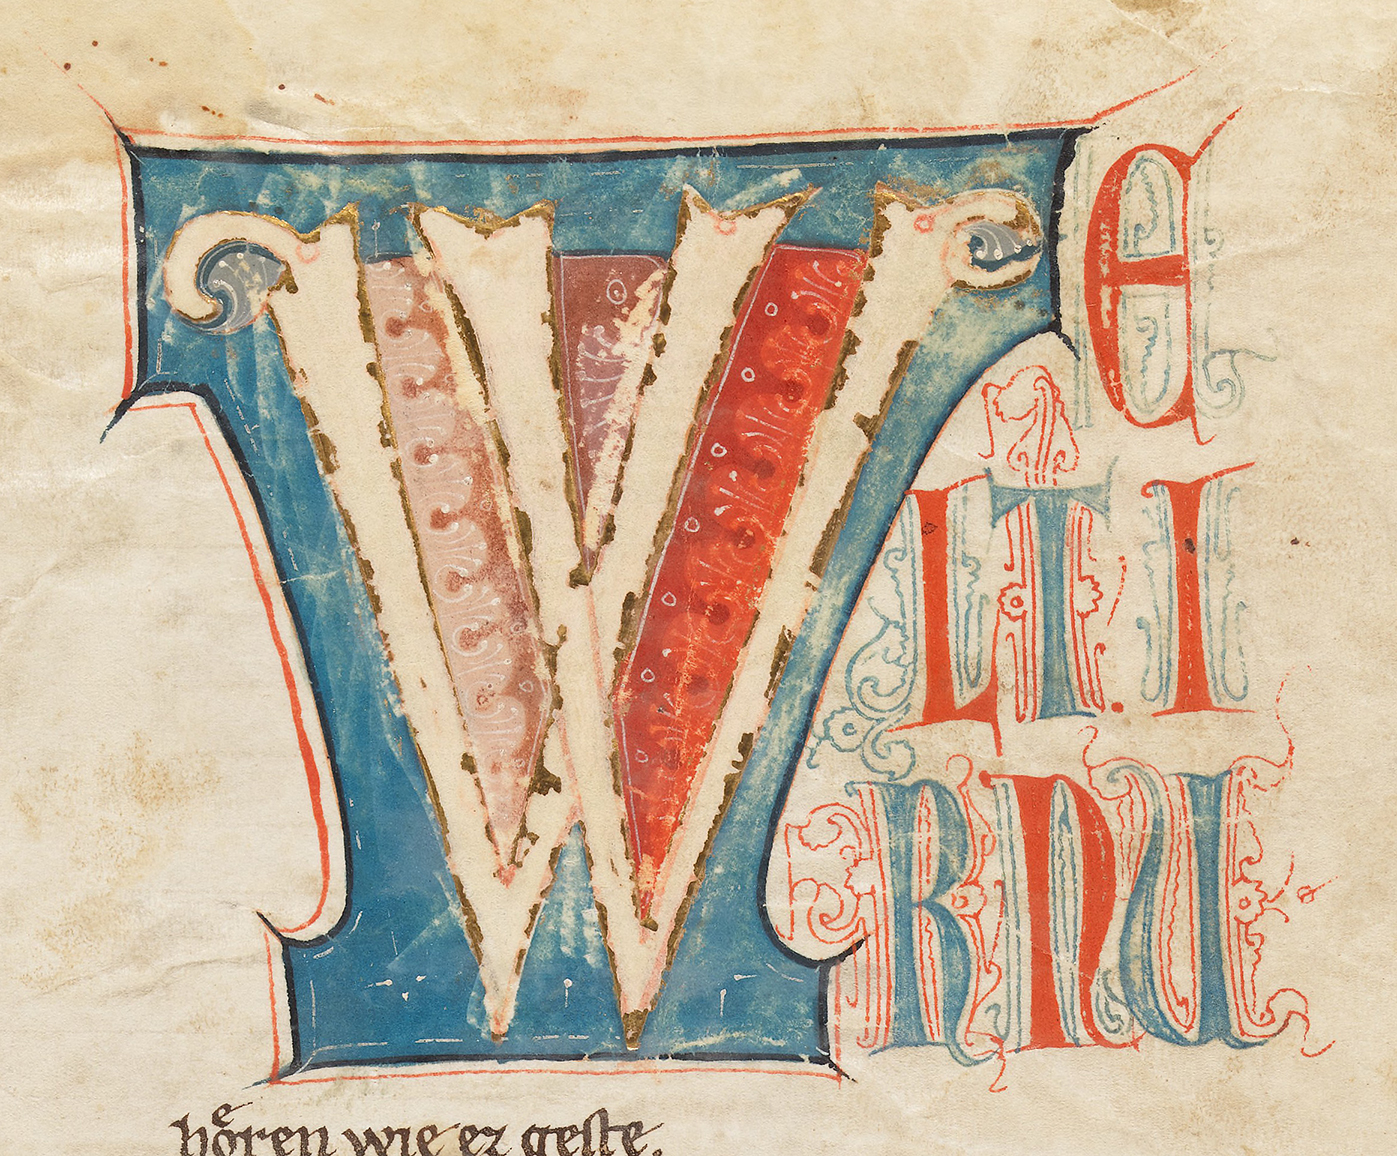 WE
LT.I
RNU
hoͤren wie ez geste.